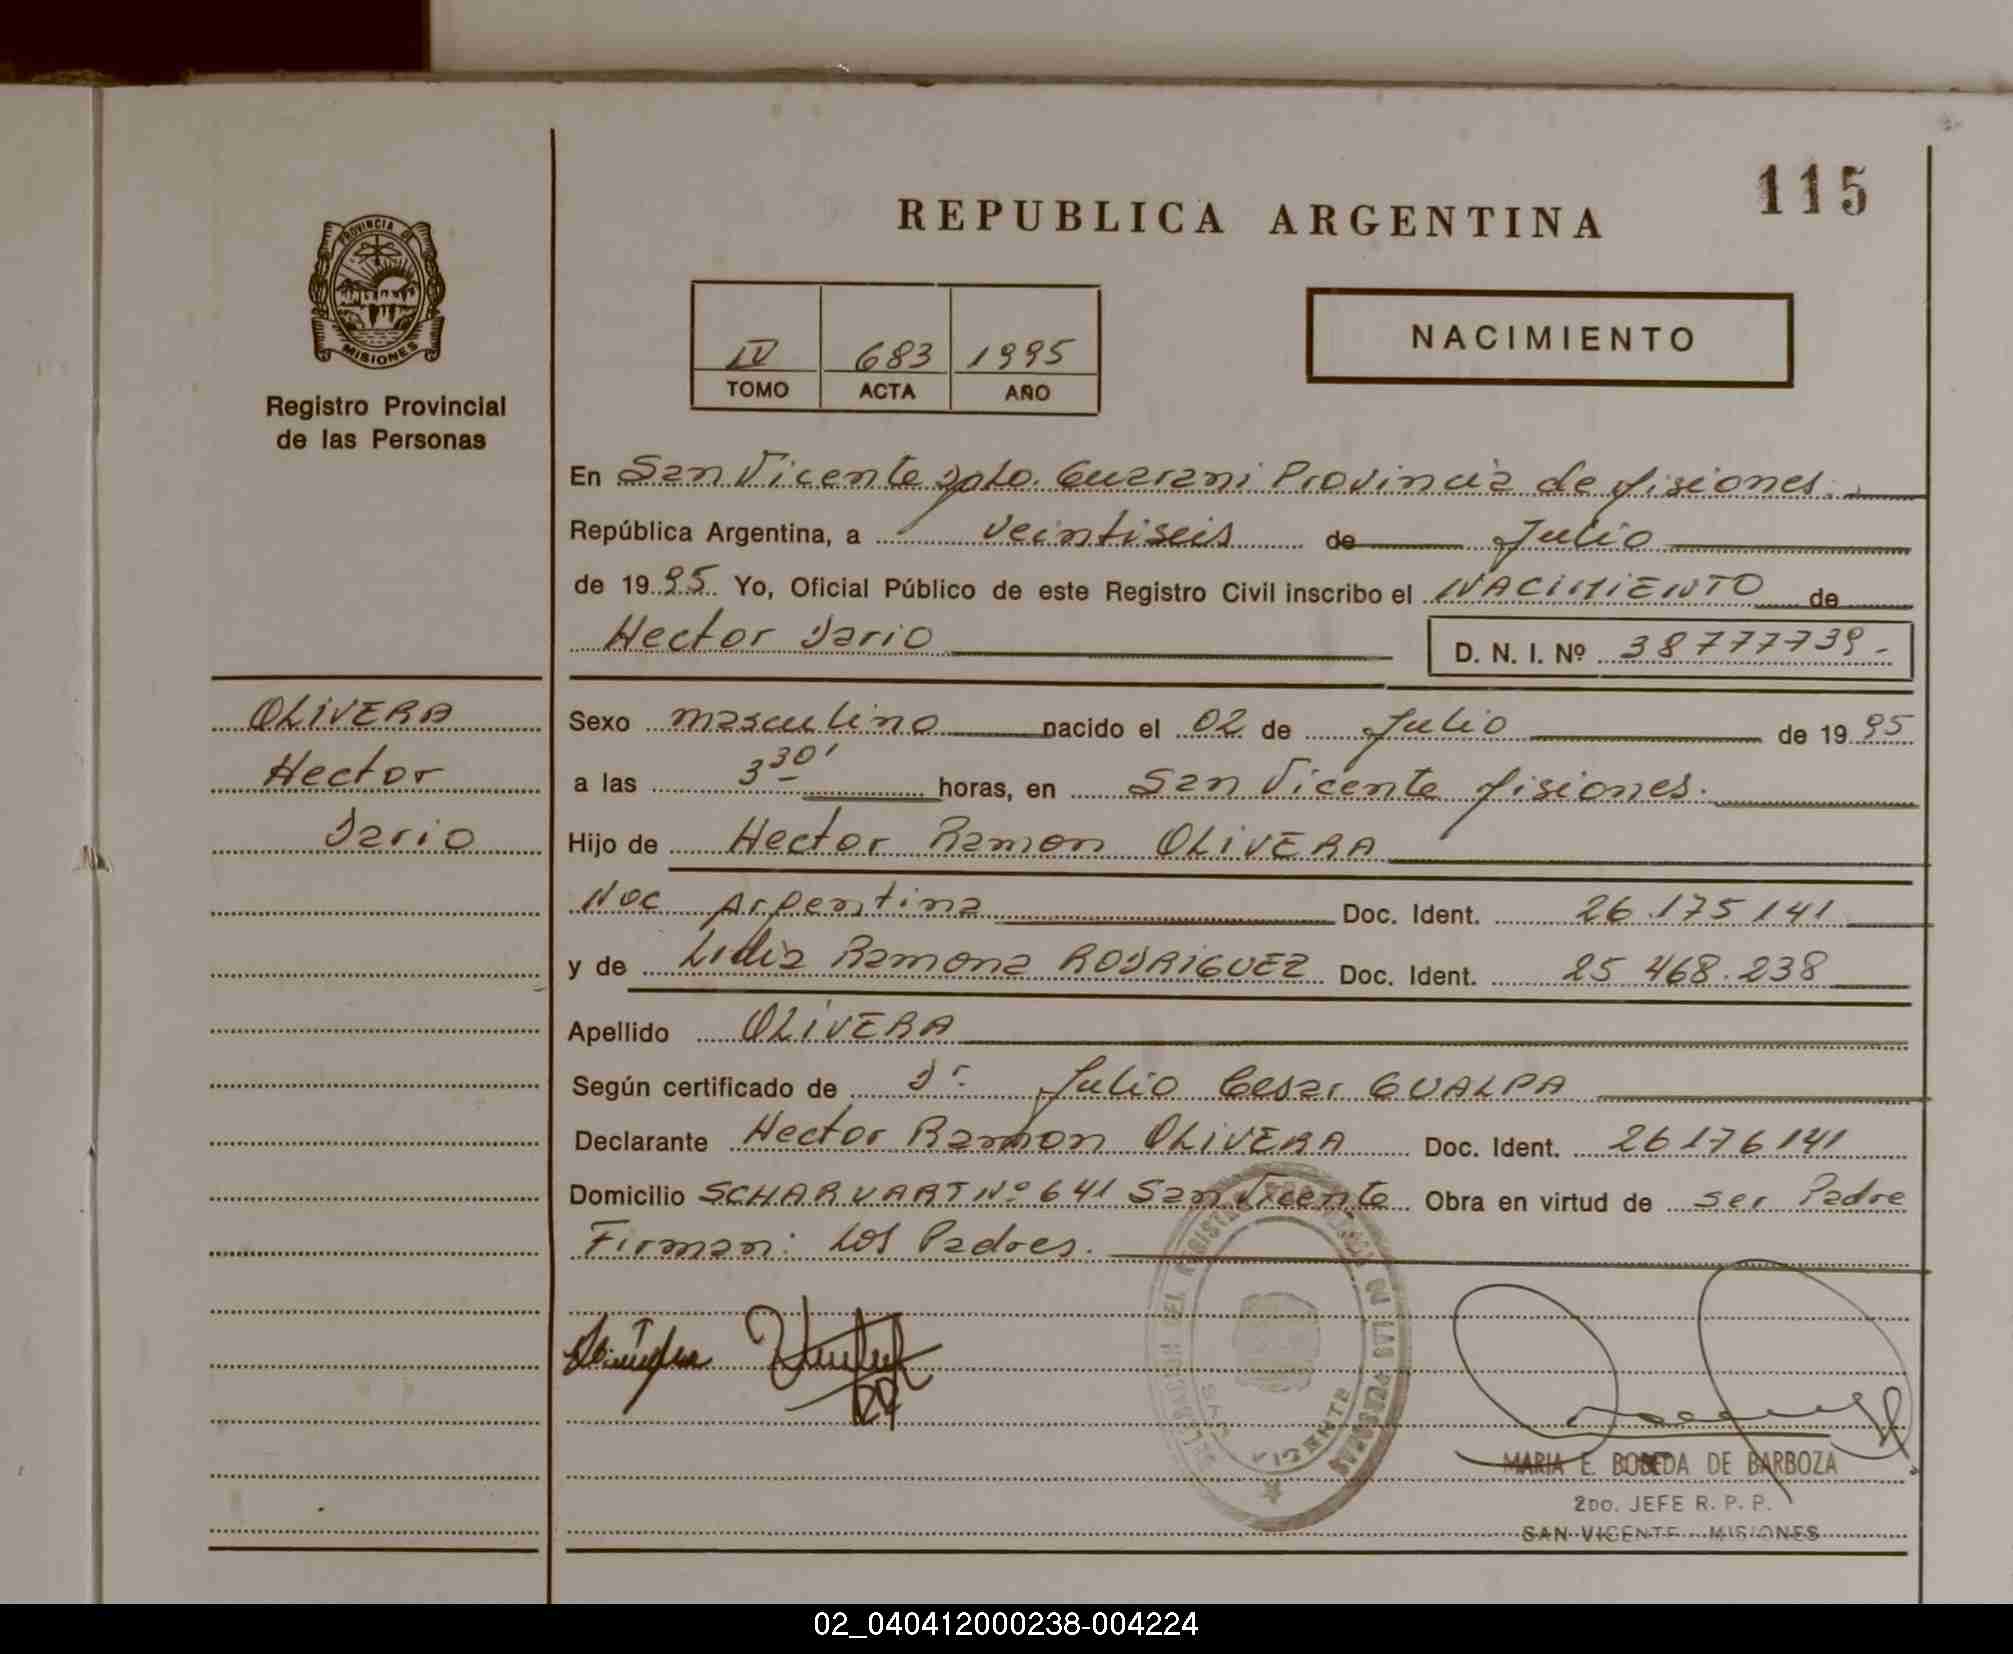 115
REPUBLICA ARGENTINA
PROVINCIA DE
MISIONES
Registro Provincial
de las Personas
IV 683 1995
TOMO ACTA AÑO
NACIMIENTO
En San Vicente Dpto. Guarani Provincia de Misiones.
República Argentina, a veintiseis de Julio
de 1995 Yo, Oficial Público de este Registro Civil inscribo el NACIMIENTO de
Hector Dario D. N. I. Nº 38777739.-
OLIVERA
Hector
Dario
Sexo masculino nacido el 02 de Julio de 1995
a las 3 30' horas, en San Vicente Misiones.
Hijo de Hector Ramon OLIVERA
Nac Argentina Doc. Ident. 26.175 141
y de Lidia Ramona RODRIGUEZ Doc. Ident. 25 468.238
Apellido OLIVERA
Según certificado de Dr. Julio Cesar GUALPA
Declarante Hector Ramon OLIVERA Doc. Ident. 26 176 141
Domicilio SCHARVART Nº 641 San Vicente Obra en virtud de ser Padre
Firman: Los Padres.
MARIA E. BOBEDA DE BARBOZA
2DO. JEFE R. P. P.
SAN VICENTE - MISIONES
DEL REGISTRO DE LAS PERSONAS
SAN VICENTE
02_040412000238-004224